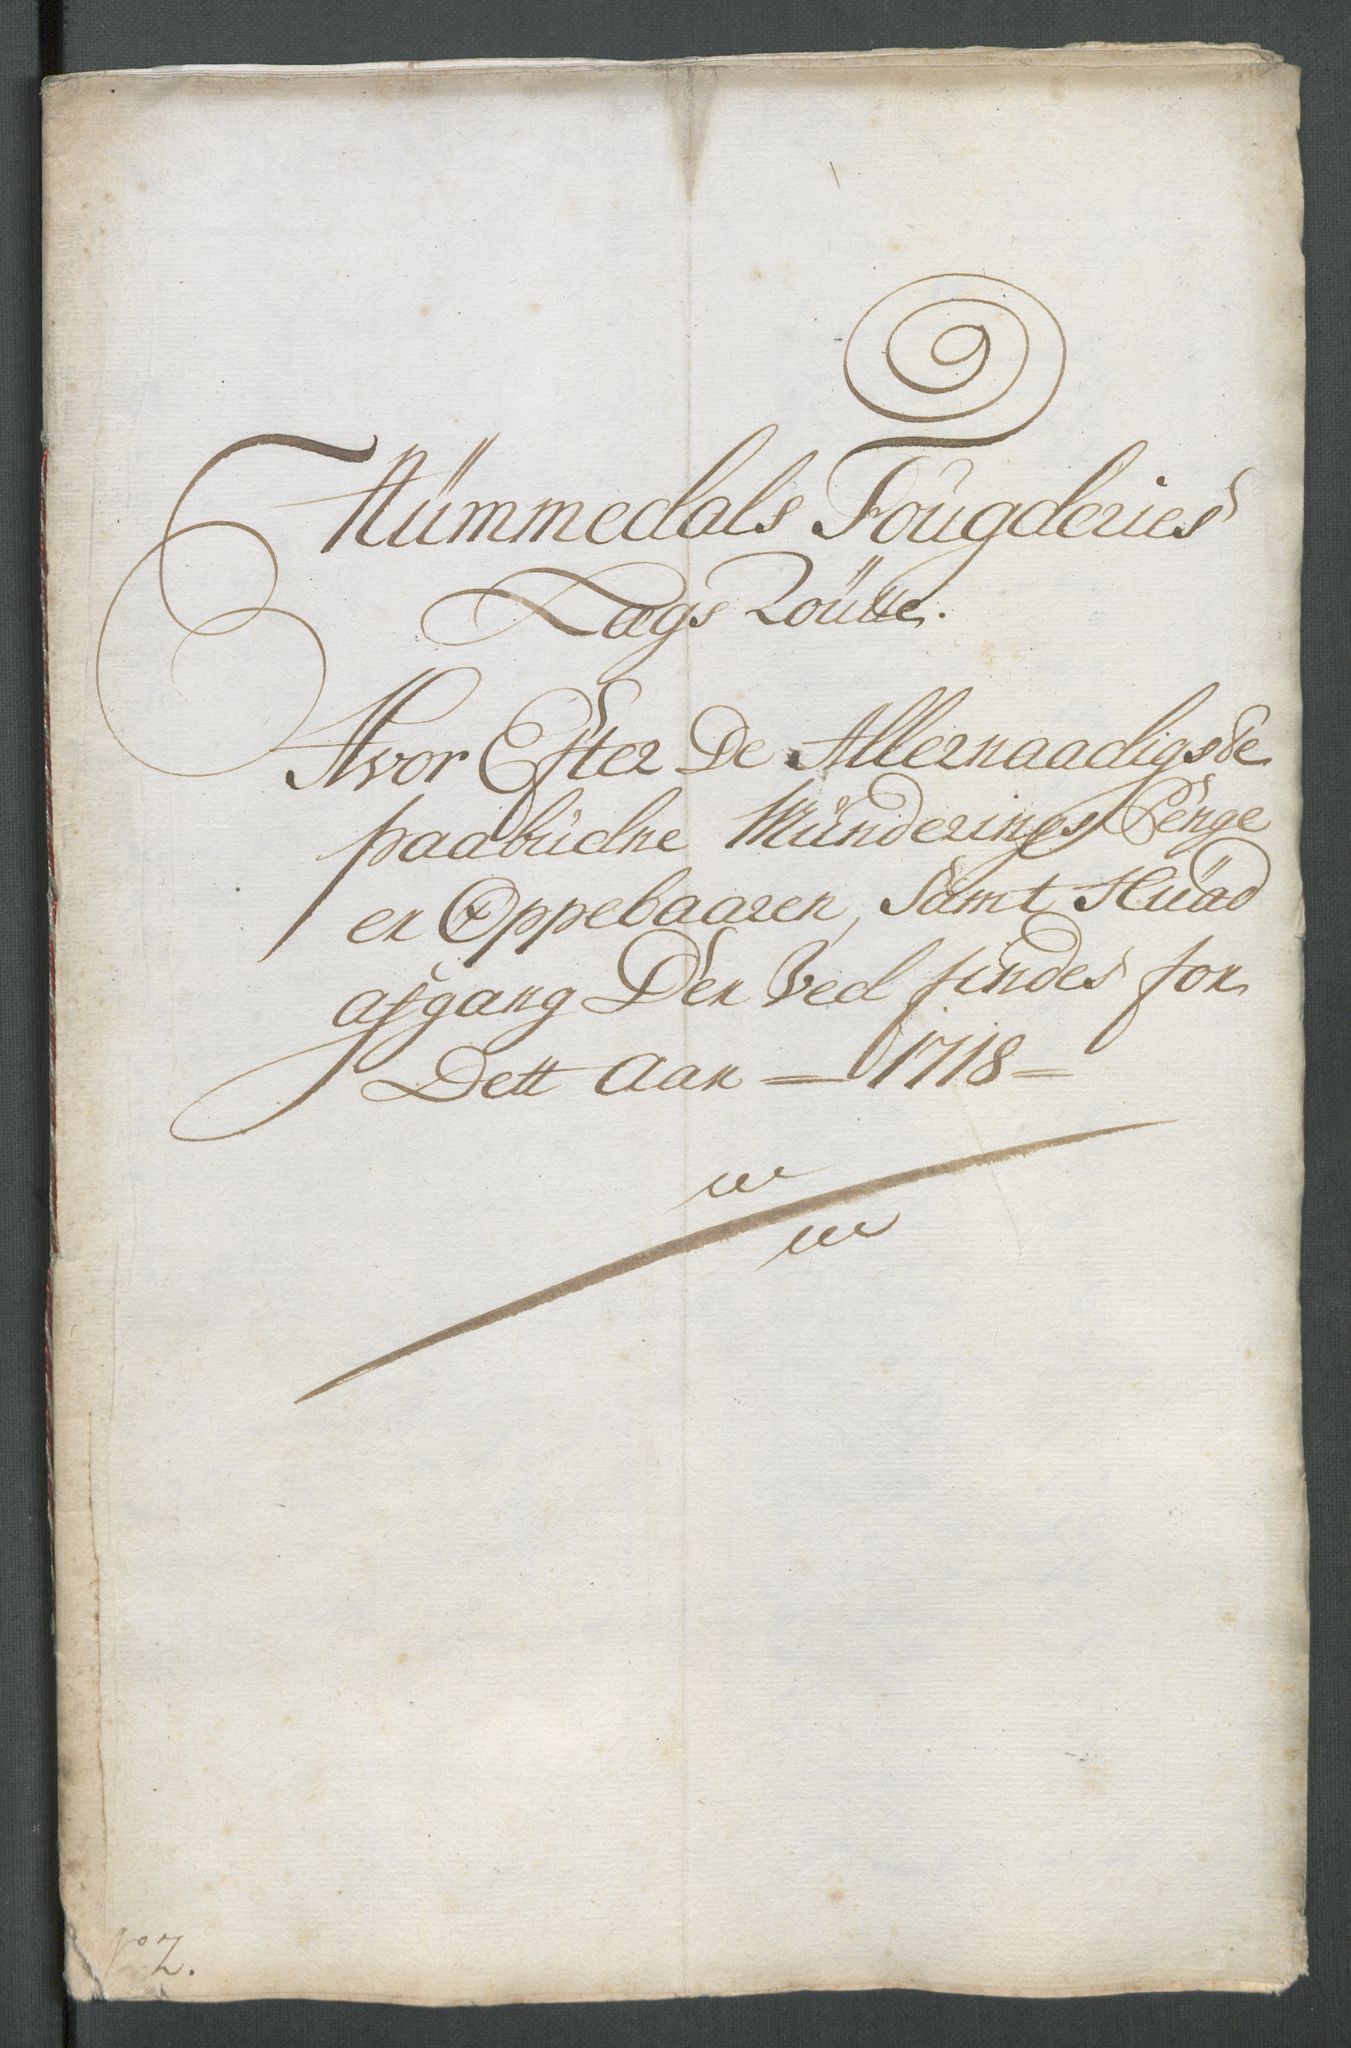 Nümmedals Fougderies
Lægs Roulle.
Hvor Efter De Allernaadigste
paabudne Munderings Penge
er Oppebaaren, Samt Hüad
afgang Der Ved findes for
Dett Aar — 1718 —
No 2.